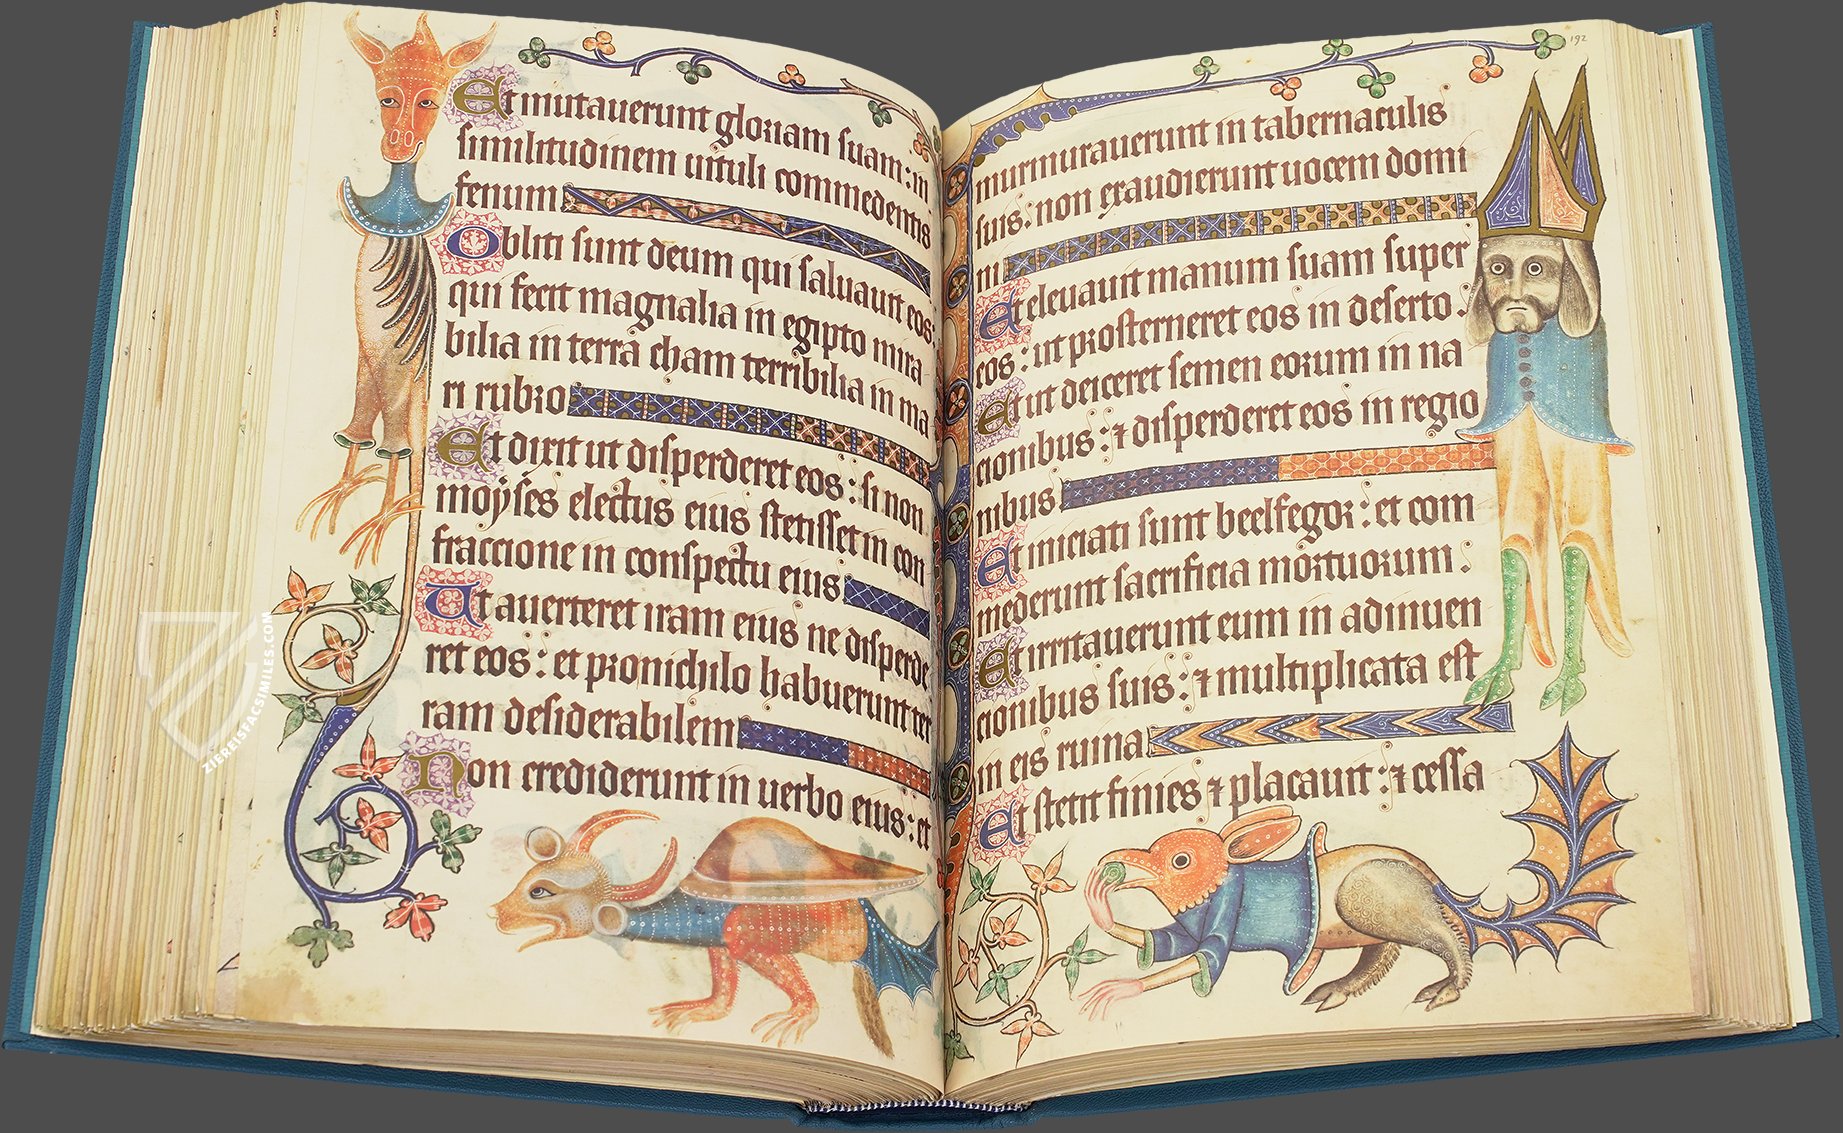 Et mutauerunt gloriam suam: in
similitudinem uituli commedentis
fenum
Obliti sunt deum qui saluauit eos:
qui fecit magnalia in egipto mira
bilia in terra cham terribilia in ma
ri rubro
Et dixit ut disperderet eos: si non
moyses electus eius stetisset in con
fraccione in conspectu eius
Ut auerteret iram eius ne disperde
ret eos: et pro nichilo habuerunt ter
ram desiderabilem
Non crediderunt in uerbo eius: et
192
murmurauerunt in tabernaculis
suis: non exaudierunt uocem domi
ni
Et eleuauit manum suam super
eos: ut prosterneret eos in deserto:
Et ut deiceret semen eorum in na
cionibus: ⁊ disperderet eos in regio
nibus
Et iniciati sunt beelfegor: et com
mederunt sacrificia mortuorum:
Et irritauerunt eum in adinuen
cionibus suis: ⁊ multiplicata est
in eis ruina
Et stetit finies ⁊ placauit: ⁊ cessa
ZIEREISFACSIMILES.COM